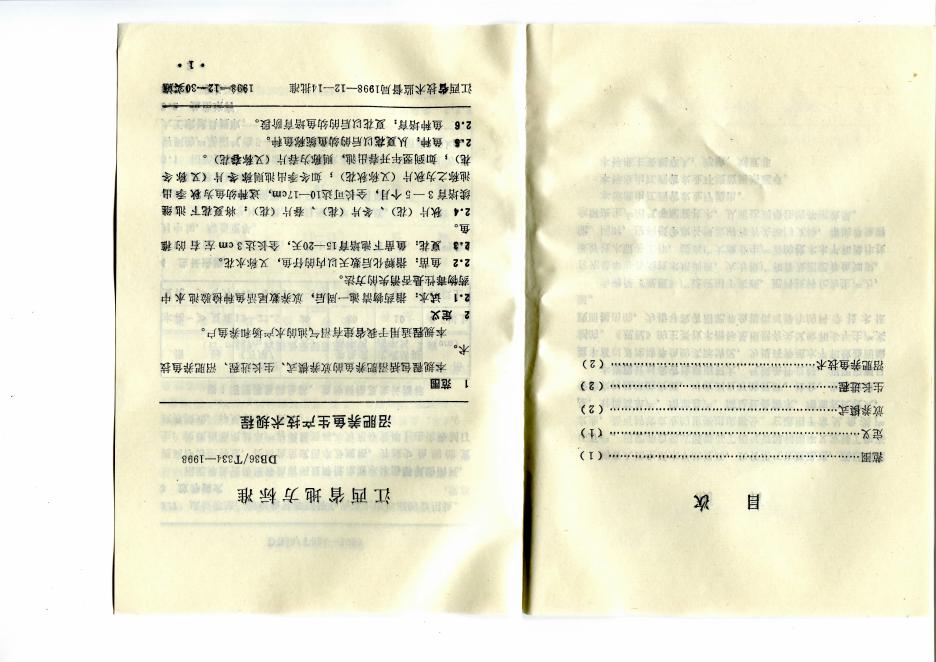 目 次
范围……………………………………(1)
定义……………………………………(1)
放养模式………………………………(2)
生长进程………………………………(2)
沼肥养鱼技术…………………………(2)
江西省地方标准
DB36/T334—1998
沼肥养鱼生产技术规程
1 范围
本规程包括沼肥养鱼的放养模式、生长进程、沼肥养鱼技
术。
本规程适用于我省建有沼气池的水产场和养鱼户。
2 定义
2.1 试水：指药物清池一周后，放养数尾活鱼种检验池水中
药物毒性是否消失的方法。
2.2 鱼苗：指孵化后数天以内的仔鱼，又称水花。
2.3 夏花：鱼苗下池培育15—20天，全长达3cm左右的稚
鱼。
2.4 秋片（花）、冬片（花）、春片（花）：将夏花下池继
续培育3—5个月，全长可达10—17cm，这种幼鱼为秋季出
池称之为秋片（又称秋花）；如冬季出池则称冬片（又称冬
花）；如到翌年开春出池，则称为春片（又称春花）。
2.5 鱼种：从夏花以后的幼鱼统称鱼种。
2.6 鱼种培育：夏花以后的幼鱼培育阶段。
江西省技术监督局1998—12—14批准 1998—12—30实施
• 1 •